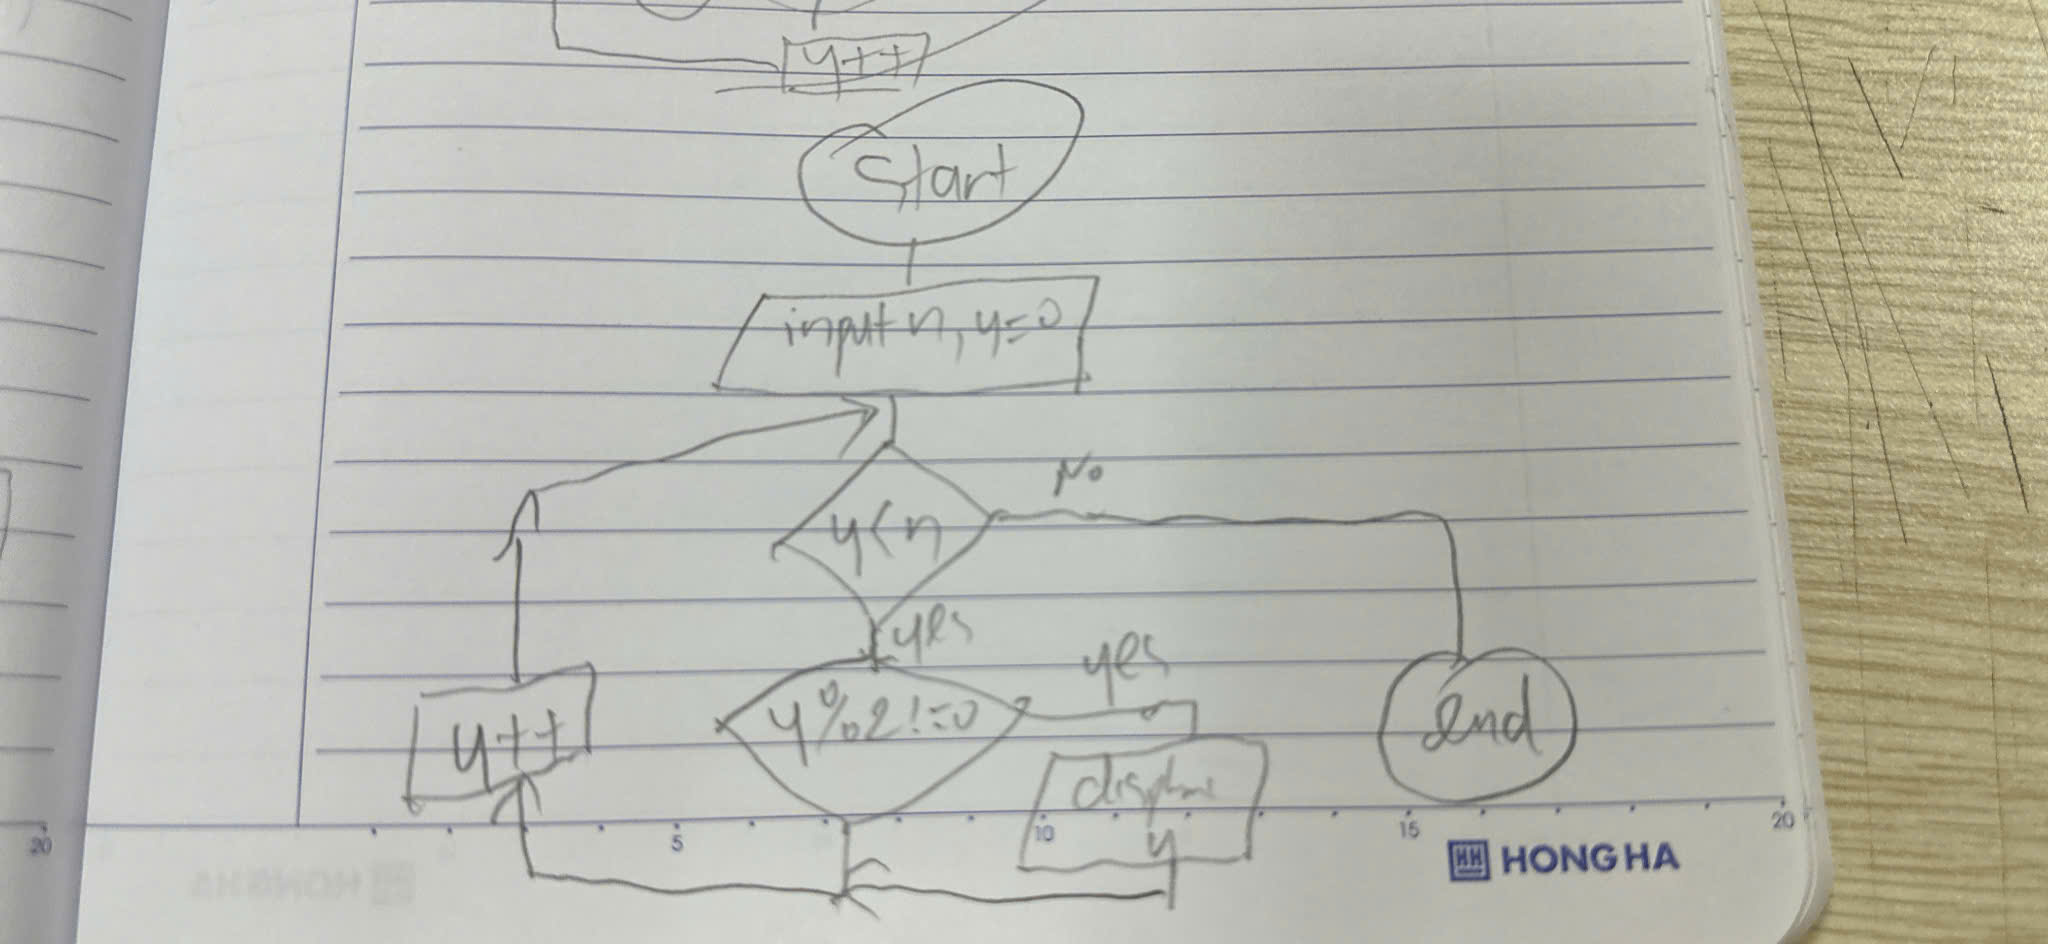 y++
Start
input n, y=0
No
y<n
yes
yes
y%2!=0
y++
display
y
end
20
5
10
15
20
HONG HA